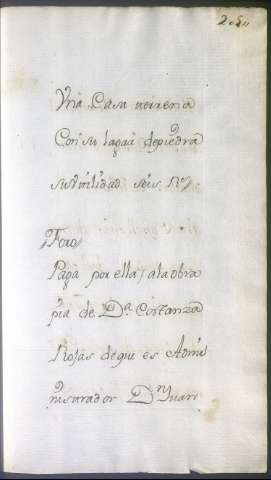 Vna Casa terrena
Con su lagar de piedra
su utilidad seis Rˢ
Foro
Paga por ella, a la obra
pia de Dª Costanza
Rojas de qu es Admi
nistrador Dⁿ Juan